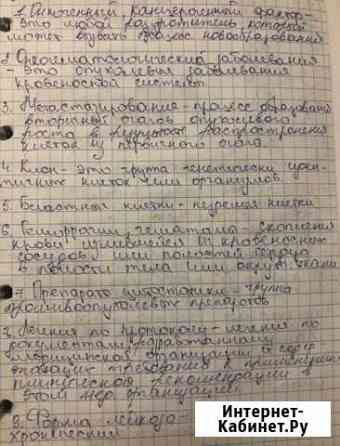 1. канцерогенный фактор -
это любой раздражитель который
может вызвать процесс новообразования
2. Онкогематологические заболевания
- это опухолевые заболевания
кровеносной системы
3. Метастазирование - процесс образования
вторичных очагов опухолевого
роста в результате распространения
клеток из первичного очага.
4. Клон - это группа генетически иден-
тичных клеток или организмов.
5. Бластные клетки - незрелые клетки
6. Геморрагии, гематомы - скопления
крови излившейся из кровеносных
сосудов или полостей сердца
в полости тела или окруж. ткани
7. Препараты цитостатики - группа
противоопухолевых препаратов
8. Лечение по протоколу - лечение по
документам, разработанным
медицинской организации и содер
жащих требования к применению
клинической рекомендации в
этом мед. организации.
9. Форма лейкоза -
хронический
Интернет-
Кабинет.Ру